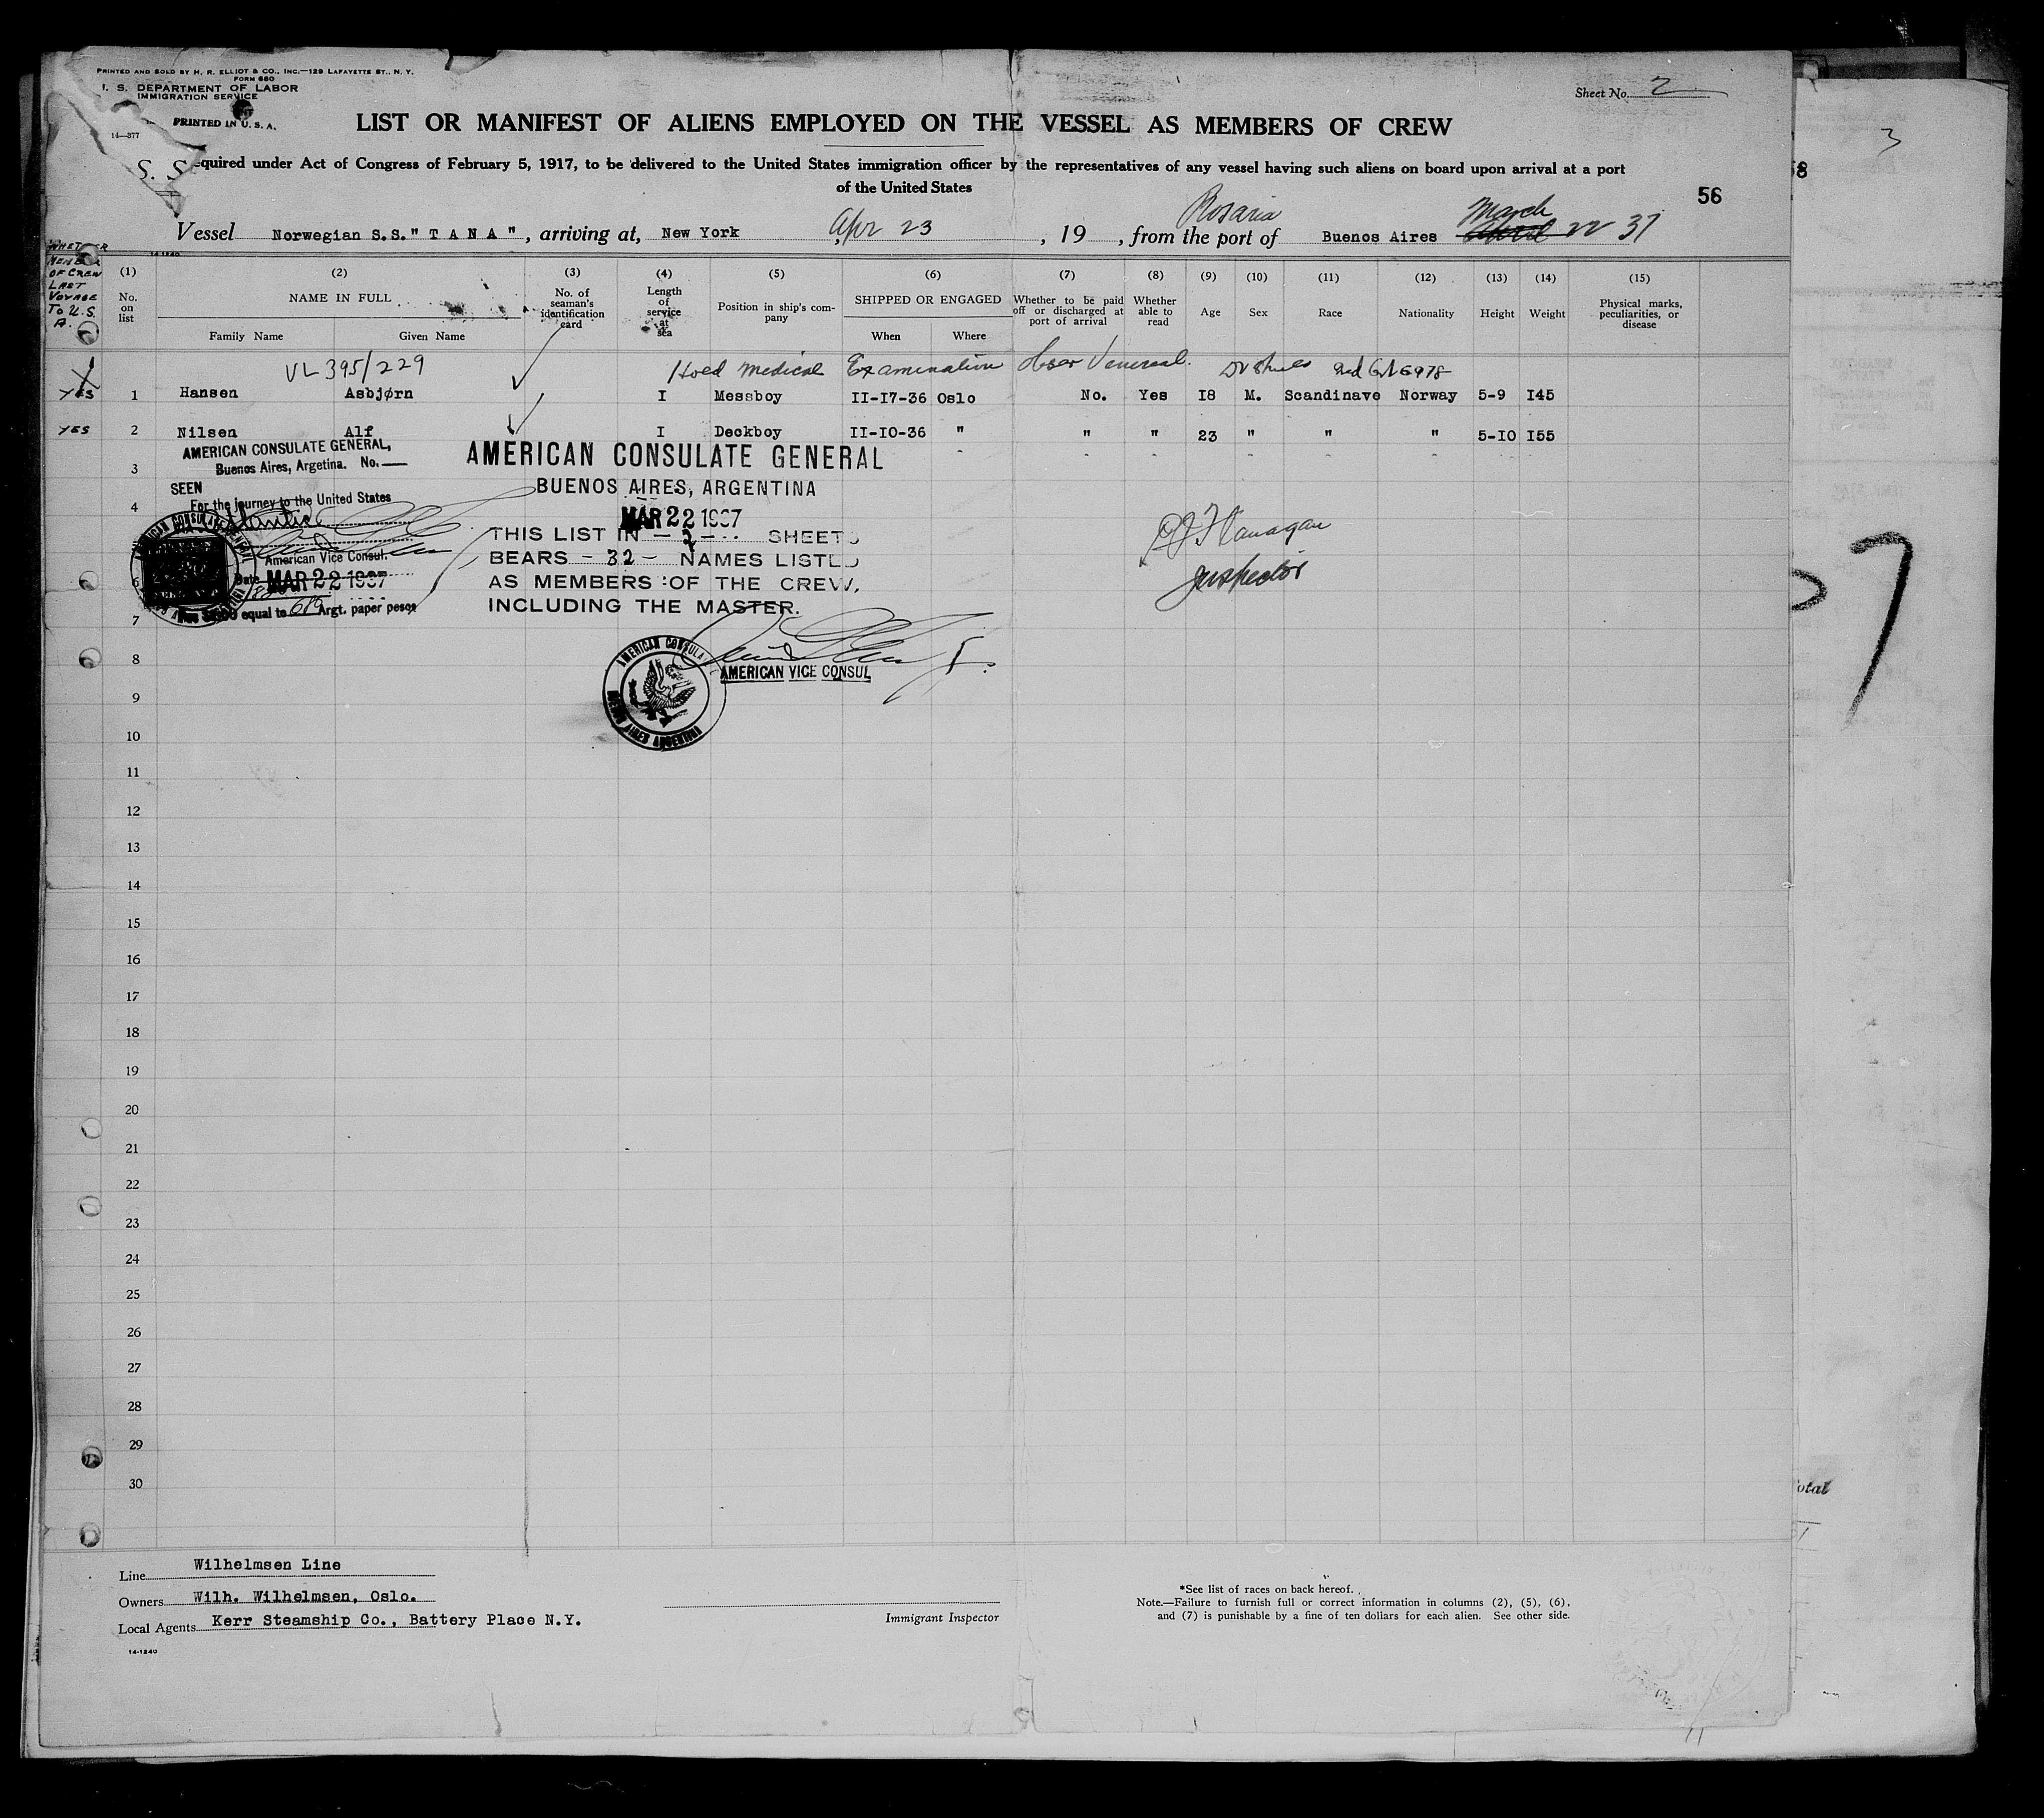 PRINTED AND SOLD BY H. R. ELLIOT & CO., INC.—129 LAFAYETTE ST., N. Y.
FORM 680
. S. DEPARTMENT OF LABOR
IMMIGRATION SERVICE
PRINTED IN U. S. A.
14—377
Sheet No. 2
3
LIST OR MANIFEST OF ALIENS EMPLOYED ON THE VESSEL AS MEMBERS OF CREW
S. S.
equired under Act of Congress of February 5, 1917, to be delivered to the United States immigration officer by the representatives of any vessel having such aliens on board upon arrival at a port
of the United States
56
58
Rosario
March
Vessel Norwegian S.S. " T A N A " , arriving at, New York Apr 23 , 19 , from the port of Buenos Aires 22 37
14-1240
WHETHER
MEMBER
OF CREW
LAST
VOYAGE
TO U.S.
A.
(1) (2) (3) (4) (5) (6) (7) (8) (9) (10) (11) (12) (13) (14) (15)
No. on list
NAME IN FULL
Family Name Given Name
No. of seaman's identification card
Length of service at sea
Position in ship's company
SHIPPED OR ENGAGED
When Where
Whether to be paid off or discharged at port of arrival
Whether able to read
Age
Sex
Race
Nationality
Height
Weight
Physical marks, peculiarities, or disease
VL 395/229 Medical Examination Venereal.
YES 1 Hansen Asbjørn I Messboy II-17-36 Oslo No. Yes I8 M. Scandinave Norway 5-9 I45
YES 2 Nilsen Alf I Deckboy II-I0-36 " " " 23 " " " 5-I0 I55
AMERICAN CONSULATE GENERAL,
Buenos Aires, Argetina. No.
SEEN
For the journey to the United States
American Vice Consul.
Date MAR 22 1937
equal to Argt. paper pesos
AMERICAN CONSULATE GENERAL
BUENOS AIRES, ARGENTINA
MAR 22 1937
THIS LIST IN - 2 - SHEETS
BEARS - 32 - NAMES LISTED
AS MEMBERS OF THE CREW,
INCLUDING THE MASTER.
AMERICAN VICE CONSUL
AMERICAN CONSULATE
BUENOS AIRES ARGENTINA
Flanagan
Inspector
7
3
4
6
7
8
9
10
11
12
13
14
15
16
17
18
19
20
21
22
23
24
25
26
27
28
29
30
otal
Line Wilhelmsen Line
Owners Wilh. Wilhelmsen, Oslo.
Local Agents Kerr Steamship Co., Battery Place N.Y.
14-1240
Immigrant Inspector
*See list of races on back hereof.
Note.—Failure to furnish full or correct information in columns (2), (5), (6),
and (7) is punishable by a fine of ten dollars for each alien. See other side.